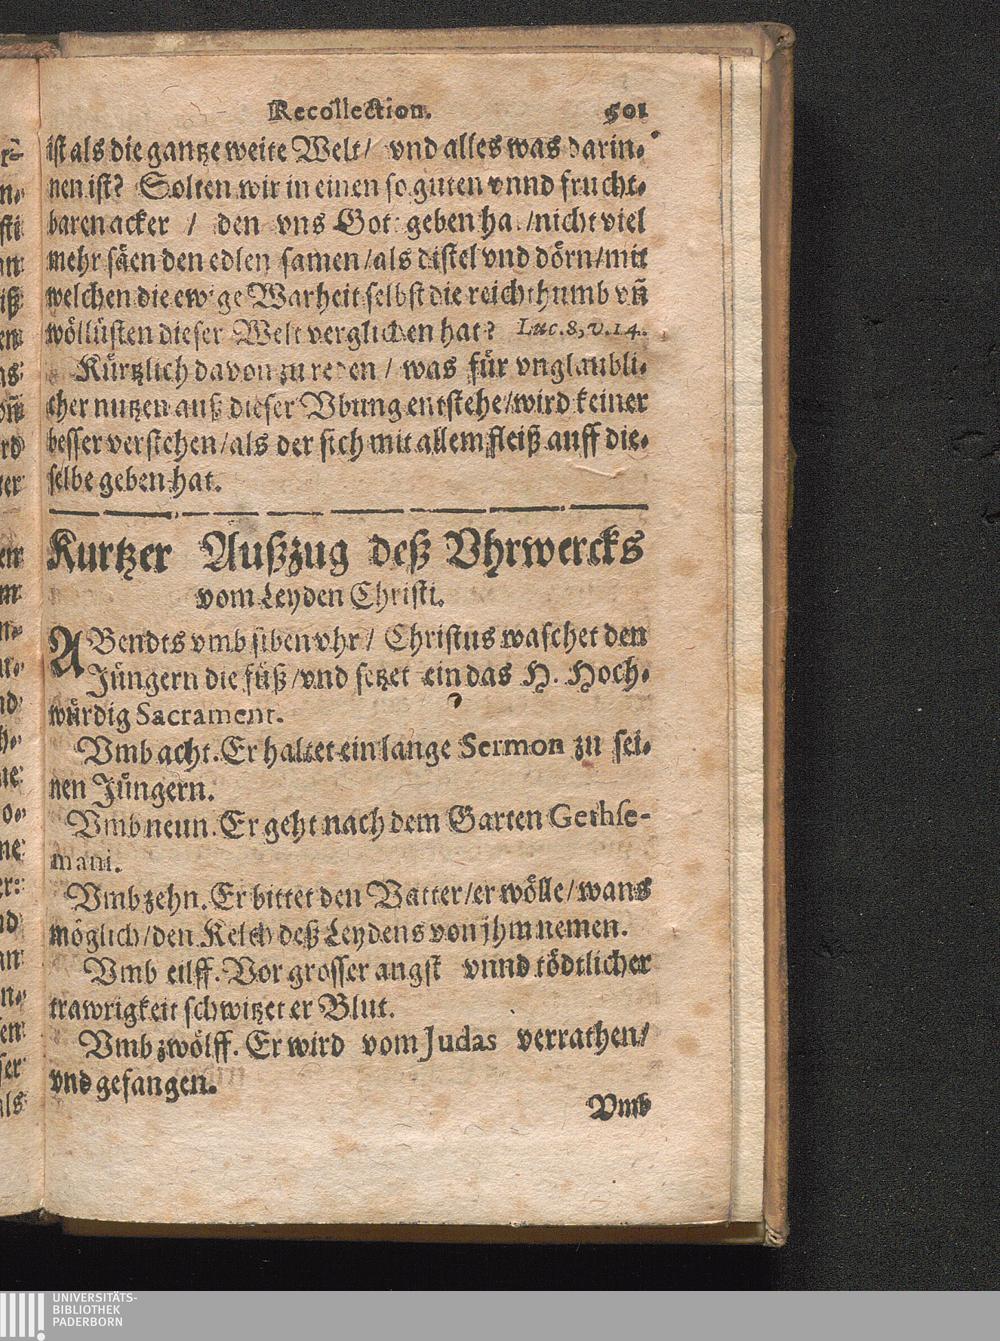 Recollection. 501
ist als die gantze weite Welt / vnd alles was darin-
nen ist? Solten wir in einen so guten vnnd frucht-
baren acker / den vns Got geben ha / nicht viel
mehr säen den edlen samen / als distel vnd dörn / mit
welchen die ewige Warheit selbst die reichthumb vñ
wöllüsten dieser Welt verglichen hat? Luc. 8, v. 14.
Kürtzlich davon zu reden / was für vnglaubli-
cher nutzen auß dieser Vbung entstehe / wird keiner
besser verstehen / als der sich mit allem fleiß auff die-
selbe geben hat.
Kurtzer Außzug deß Vhrwercks
vom Leyden Christi.
ABendts vmb siben vhr / Christus waschet den
Jüngern die füß / vnd setzet ein das H. Hoch-
würdig Sacrament.
Vmb acht. Er haltet ein lange Sermon zu sei-
nen Jüngern.
Vmb neun. Er geht nach dem Garten Gethse-
mani.
Vmb zehn. Er bittet den Vatter / er wölle / wans
möglich / den Kelch deß Leydens von jhm nemen.
Vmb eilff. Vor grosser angst vnnd tödtlicher
trawrigkeit schwitzet er Blut.
Vmb zwölff. Er wird vom Judas verrathen /
vnd gefangen.
Vmb
UNIVERSITÄTS-
BIBLIOTHEK
PADERBORN